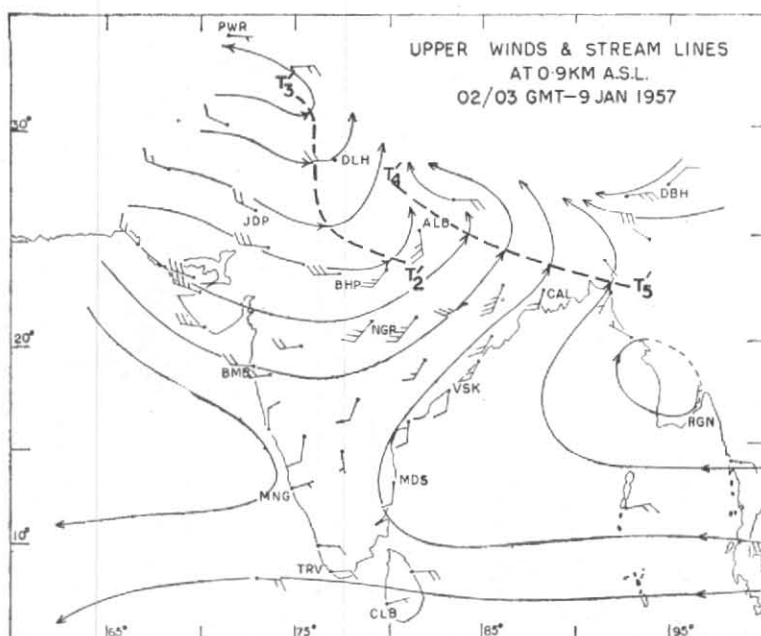 PWR
UPPER WINDS & STREAM LINES
AT 0·9KM A.S.L.
02/03 GMT-9 JAN 1957
T'3
30°
DLH
T'4
DBH
JDP
ALB
T'2
T'5
BHP
CAL
NGP
20°
BMB
VSK
RGN
MDS
MNG
10°
TRV
CLB
65°
75°
85°
95°